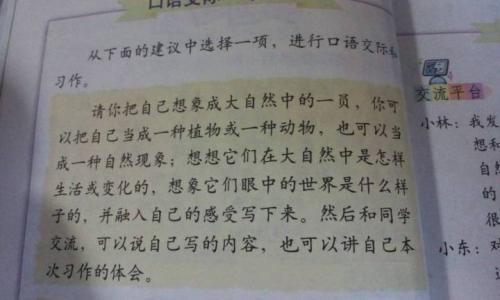 口语交际
从下面的建议中选择一项，进行口语交际和
习作。
请你把自己想象成大自然中的一员，你可
以把自己当成一种植物或一种动物，也可以当
成一种自然现象；想想它们在大自然中是怎样
生活或变化的，想象它们眼中的世界是什么样
子的，并融入自己的感受写下来。然后和同学
交流，可以说自己写的内容，也可以讲自己本
次习作的体会。
交流平台
小林：我发
想和
自然
的
很
小东：对